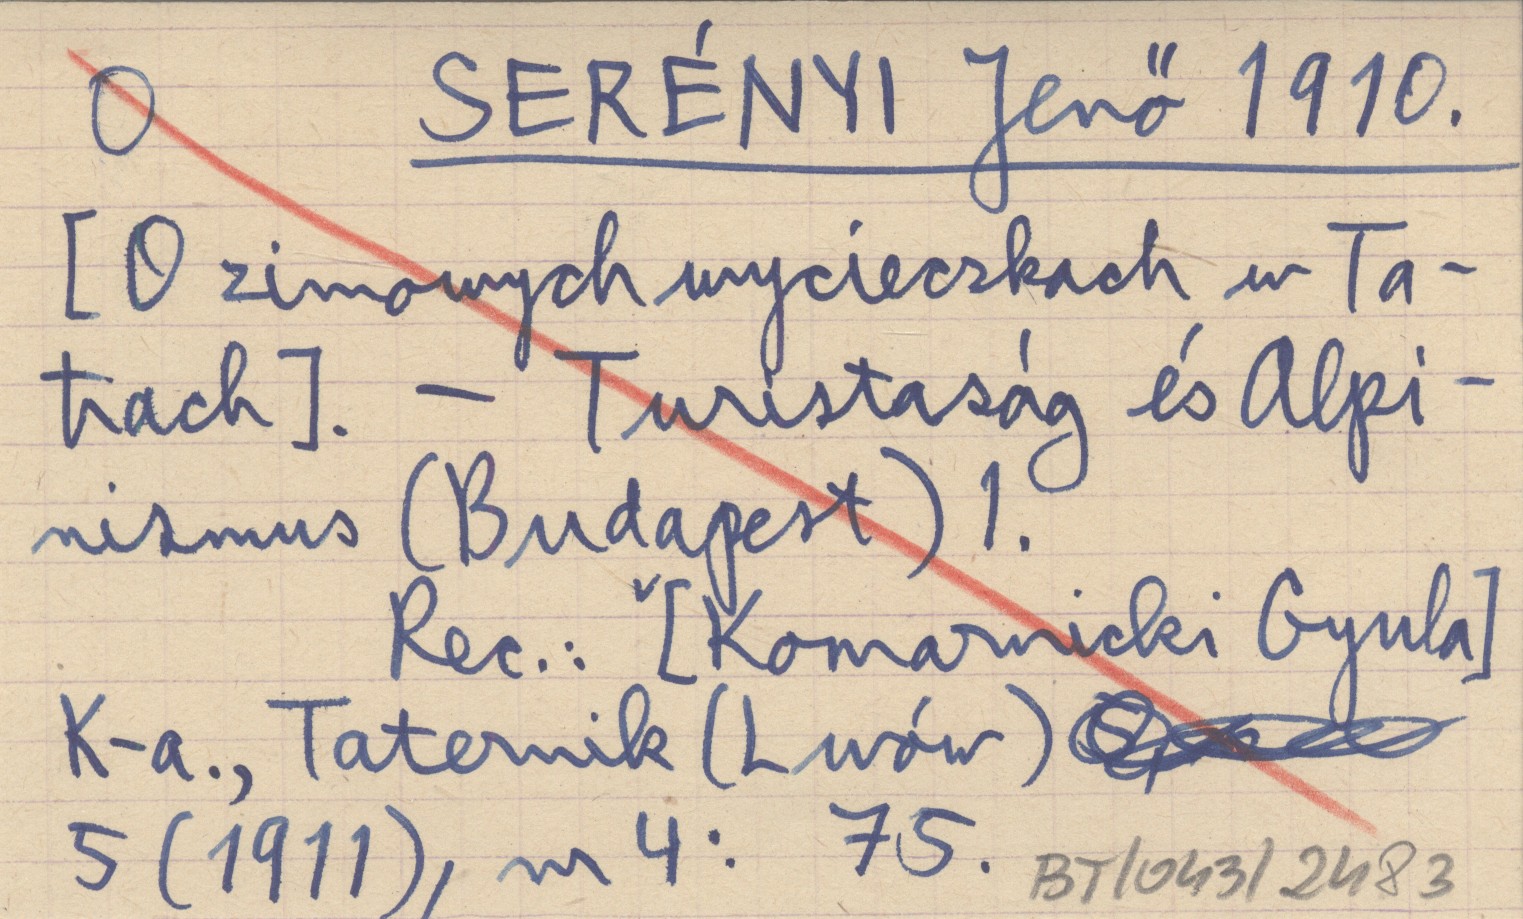 O SERÉNYI Jenő 1910.
[O zimowych wycieczkach w Ta-
trach]. — Turistaság és Alpi-
nizmus (Budapest) 1.
Rec.: [Komarnicki Gyula]
K-a., Taternik (Lwów)
5 (1911), nr 4: 75.
BT/043/2483